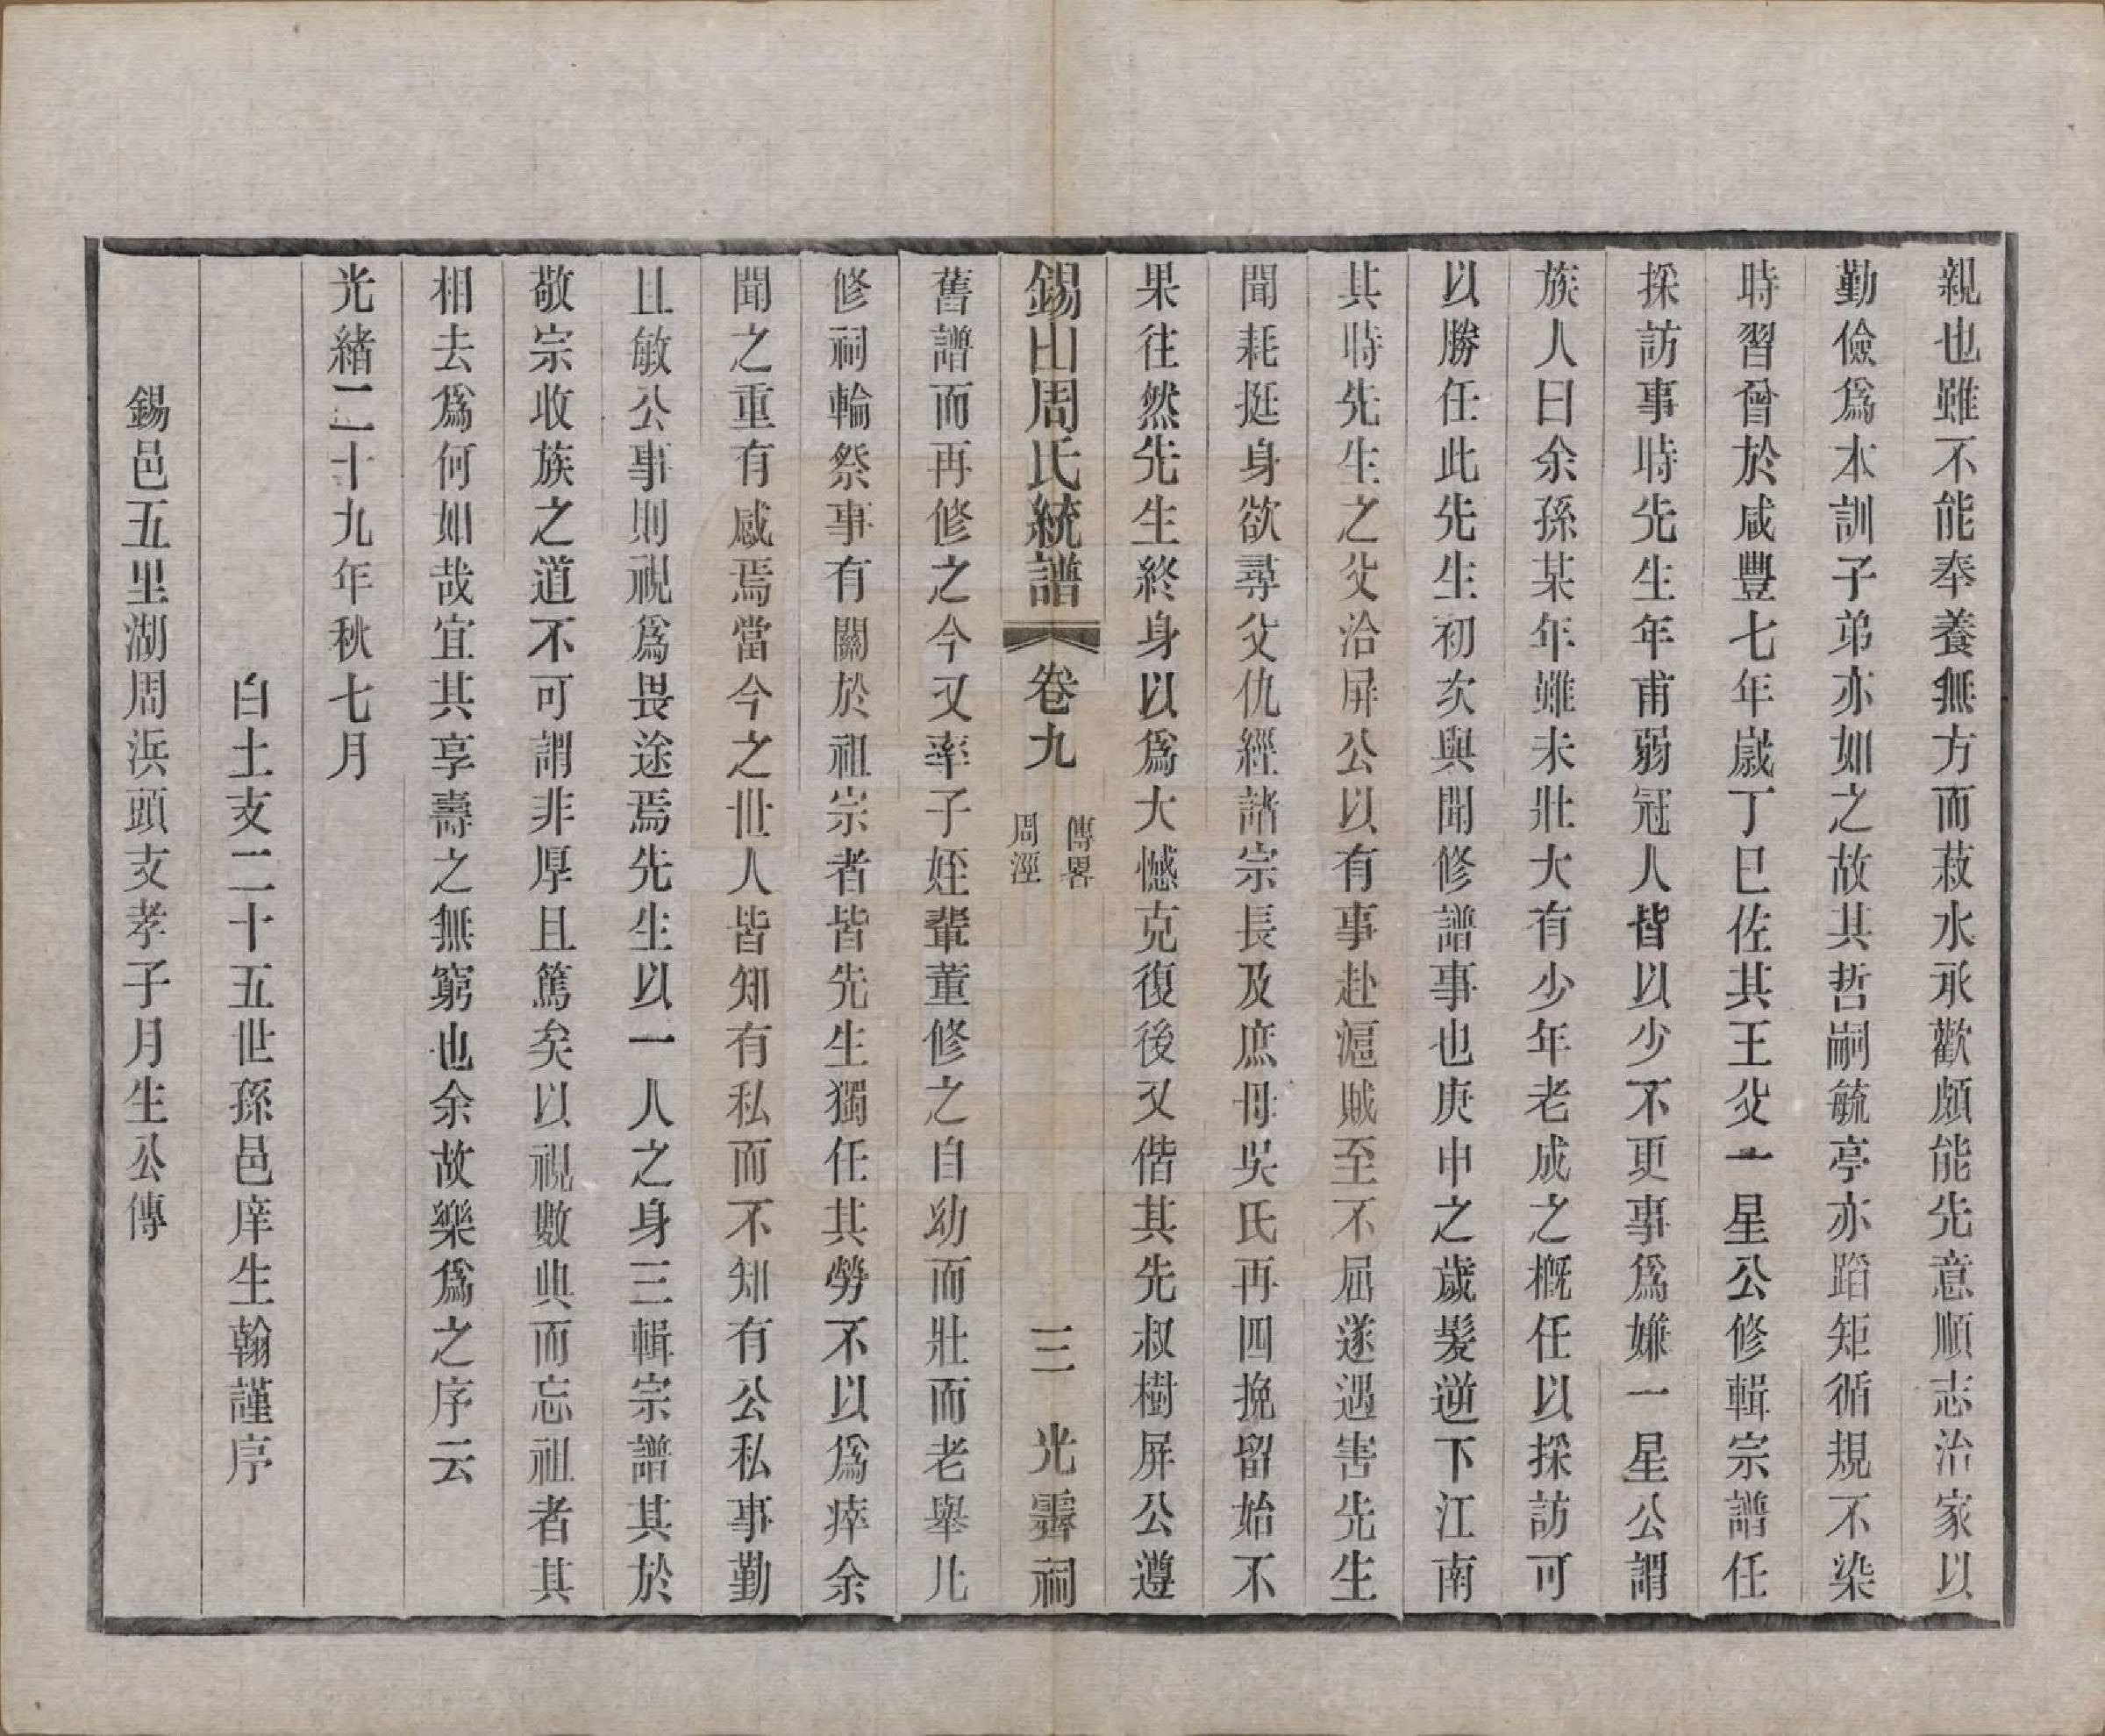 親也雖不能奉養無方而菽水承歡頗能先意順志治家以
勤儉爲本訓子弟亦如之故其哲嗣毓亭亦蹈矩循規不染
時習曾於咸豐七年歲丁巳佐其王父一星公修輯宗譜任
採訪事時先生年甫弱冠人皆以少不更事爲嫌一星公謂
族人曰余孫某年雖未壯大有少年老成之概任以採訪可
以勝任此先生初次與聞修譜事也庚申之歲髮逆下江南
其時先生之父洽屏公以有事赴滬賊至不屈遂遇害先生
聞耗挺身欲尋父仇經諸宗長及庶母吳氏再四挽留始不
果往然先生終身以爲大憾克復後又偕其先叔樹屏公遵
錫山周氏統譜
卷九
傳畧
周涇
三
光霽祠
舊譜而再修之今又率子姪輩董修之自幼而壯而老舉凡
修祠輪祭事有關於祖宗者皆先生獨任其勞不以爲瘁余
聞之重有感焉當今之世人皆知有私而不知有公私事勤
且敏公事則視爲畏途焉先生以一人之身三輯宗譜其於
敬宗收族之道不可謂非厚且篤矣以視數典而忘祖者其
相去爲何如哉宜其享壽之無窮也余故樂爲之序云
光緒二十九年秋七月
白土支二十五世孫邑庠生翰謹序
錫邑五里湖周浜頭支孝子月生公傳